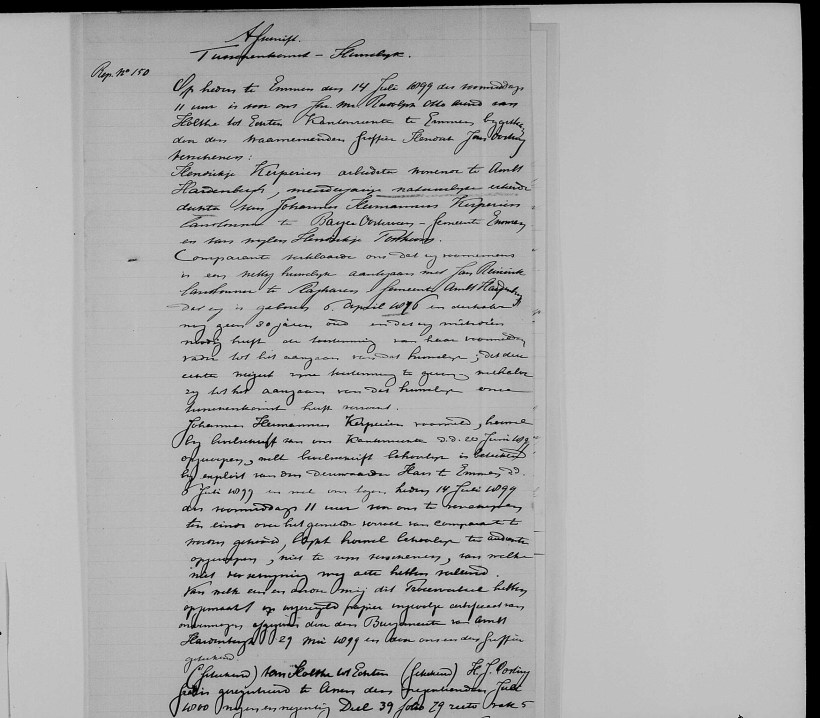 Afschrift.
Tusschenkomst – Huwelijk.
Rep. No 150
Op heden te Emmen den 14 Juli 1899 des voormiddags
11 uur is voor ons Jhr Mr Rudolph Otto van
Holthe tot Echten Kantonrechter te Emmen
door den waarnemenden Griffier Hendrik Jan Oosting
verschenen:
Hendrikje Kerperien arbeidster wonende te Ambt
Hardenbergh, meerderjarige natuurlijke erkende
dochter van Johannes Hermannus Kerperien
landbouwer te Barger Oosterveen – gemeente Emmen
en van wijlen Hendrikje
Comparante verklaarde ons dat zij voornemens
is een wettig huwelijk aantegaan met Jan Reinink
landbouwer te gemeente Ambt Hardenbergh
dat zij is geboren 6 April 1876 en derhalve
nog geen 30 jaren oud en dat zij mitsdien
noodig heeft de toestemming van haar voornoemden
vader tot het aangaan van dat huwelijk, dat deze
echter weigert zijne toestemming te geven weshalve
zij tot het aangaan van dat huwelijk onze
tusschenkomst heeft verzocht.
Johannes Hermannus Kerperien voormeld, hoewel
bij bevelschrift van ons Kantonrechter d.d. 20 Juni 1899
opgeroepen, welk bevelschrift behoorlijk is beteekend
bij exploit van den deurwaarder Haas te Emmen d.d.
Juli 1899 en wel om tegen heden 14 Juli 1899
des voormiddags 11 uur voor ons te verschijnen
ten einde over het gemelde verzoek van comparante te
worden gehoord, is, hoewel behoorlijk
opgeroepen, niet te zijn verschenen, van welke
niet verschijning wij acte hebben verleend.
Van welk een en ander wij dit Procesverbaal hebben
opgemaakt op ongezegeld papier ingevolge certificaat van
onvermogen afgegeven door den Burgemeester van Ambt
Hardenbergh 29 Mei 1899 en door ons en den griffier
geteekend.
(Geteekend) van Holthe tot Echten (Geteekend) H. J. Oosting
gratis geregistreerd te Assen den negentienden Juli
1800 negen en negentig Deel 39 folio 79 recto vak 5